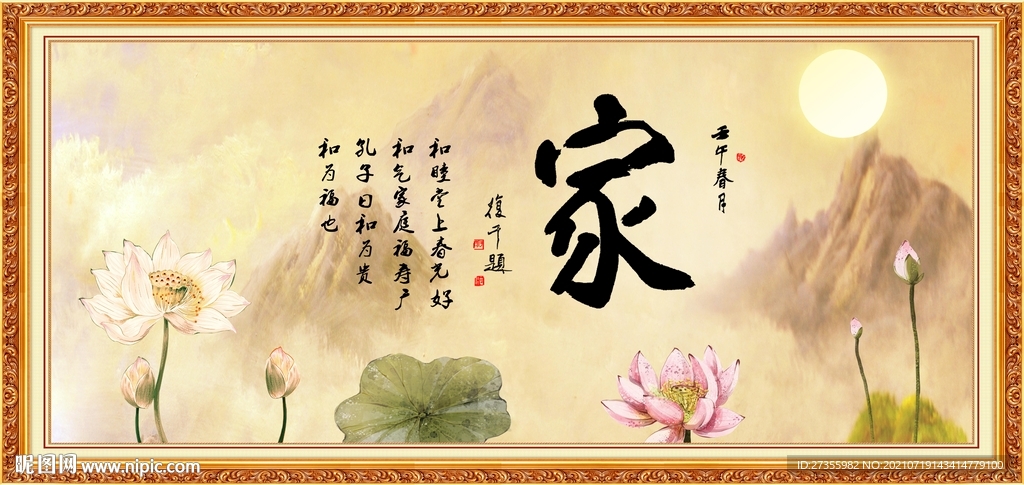 壬午春月
家
復千題
和睦堂上春光好
和气家庭福寿广
孔子曰和为贵
和为福也
昵图网 www.nipic.com
ID:27355982 NO:20210719143414779100